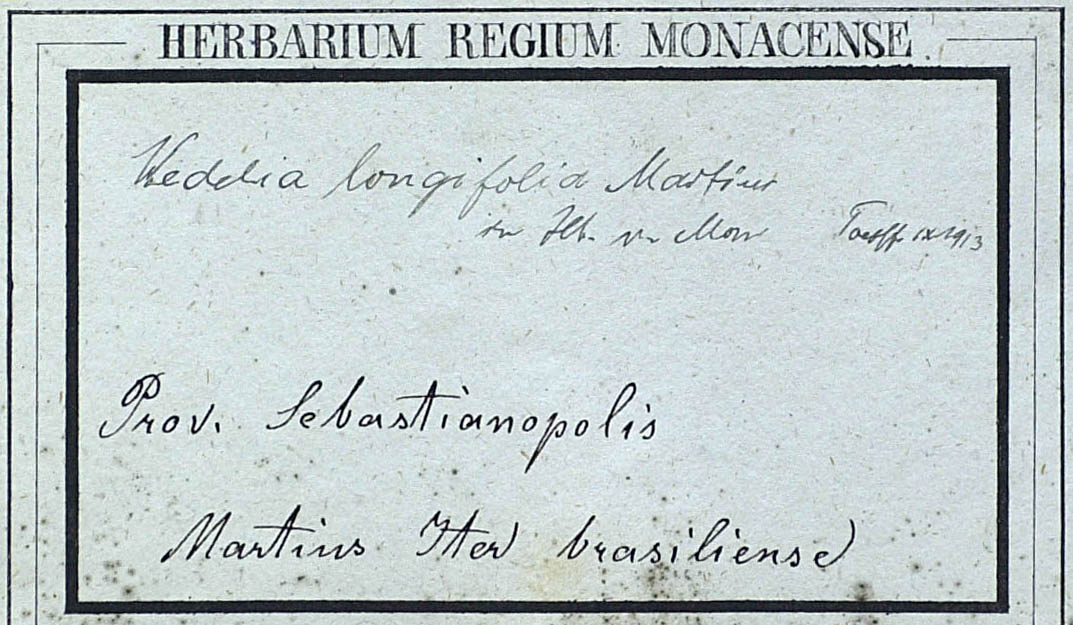 HERBARIUM REGIUM MONACENSE.
Weddia longifolia Martius
in Hb. v. Mon
Prov. Sebastianopolis
Martius Iter brasiliense